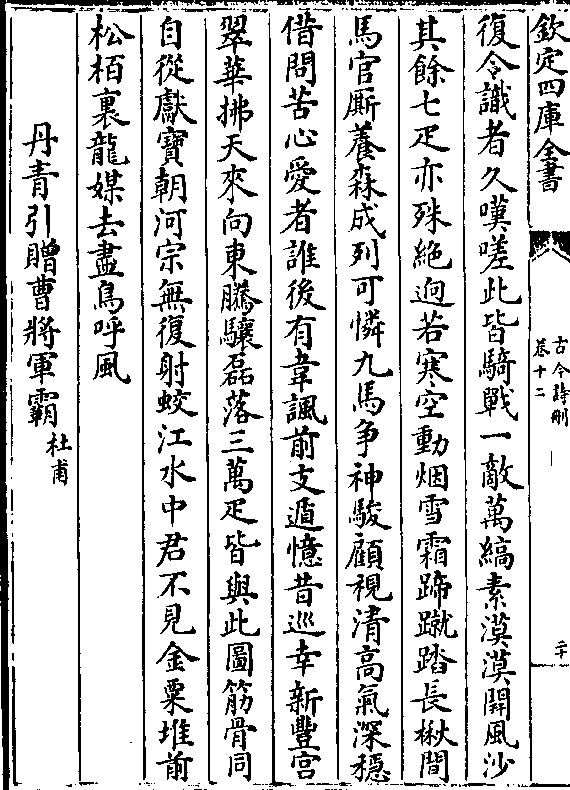 欽定四庫全書
古今詩刪
卷十二
二十
復令識者久嘆嗟此皆騎戰一敵萬縞素漠漠開風沙
其餘七疋亦殊絶迥若寒空動烟雪霜蹄蹴踏長楸間
馬官厮養森成列可憐九馬爭神駿顧視清高氣深穩
借問苦心愛者誰後有韋諷前支遁憶昔巡幸新豐宫
翠華拂天來向東騰驤磊落三萬疋皆與此圖筋骨同
自從獻寳朝河宗無復射蛟江水中君不見金粟堆前
松栢裏龍媒去盡鳥呼風
丹青引贈曹將軍霸杜甫